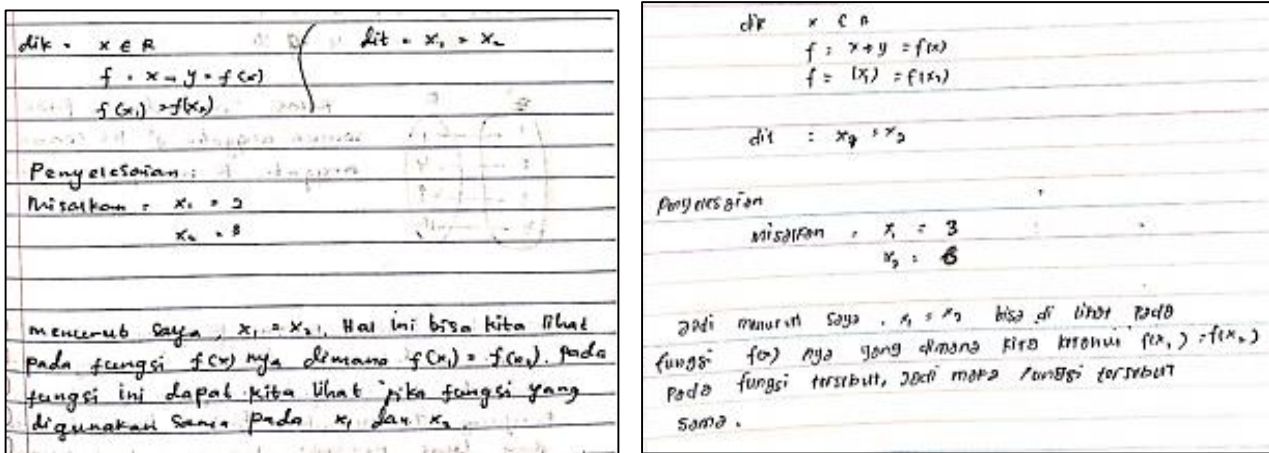 dik = x ∈ R
dit = x₁ = x₂
f = x → y = f(x)
f(x₁) = f(x₂)
Penyelesaian:
Misalkan = x₁ =
x₂ =
menurub saya, x₁ = x₂. Hal ini bisa kita lihat
pada fungsi f(x) nya dimana f(x₁) = f(x₂). pada
fungsi ini dapat kita lihat jika fungsi yang
digunakan sama pada x₁ dan x₂.
dik x ∈ R
f : x → y = f(x)
f = (x₁) = f(x₂)
dit : = x₂
Penyelesaian
misalkan, x₁ = 3
x₂ =
Jadi menurut saya, x₁ = x₂ bisa di lihat pada
fungsi f(x) nya yang dimana kita f(x₁) = f(x₂)
pada fungsi tersebut, jadi maka fungsi tersebut
sama.